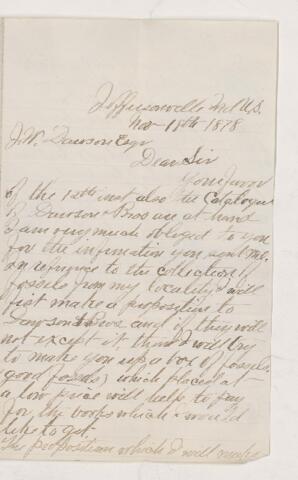 Jeffersonville Ind U.S.
Nov 18th 1878
J.W. Dawson Esqr
Dear Sir
Your favor
of the 12th inst also the Catalogue
of Dawson Bros are at hand
I am very much obliged to you
for the information you sent me.
in refrence to the collection of
fossils from my locality I will
first make a proposition to
Dawson Bros and if they will
not except it, then I will try
to make you up a box of fossils
good fossils) which placed at
a low price will help to pay
for the books which I would
like to get
The proposition which I will make